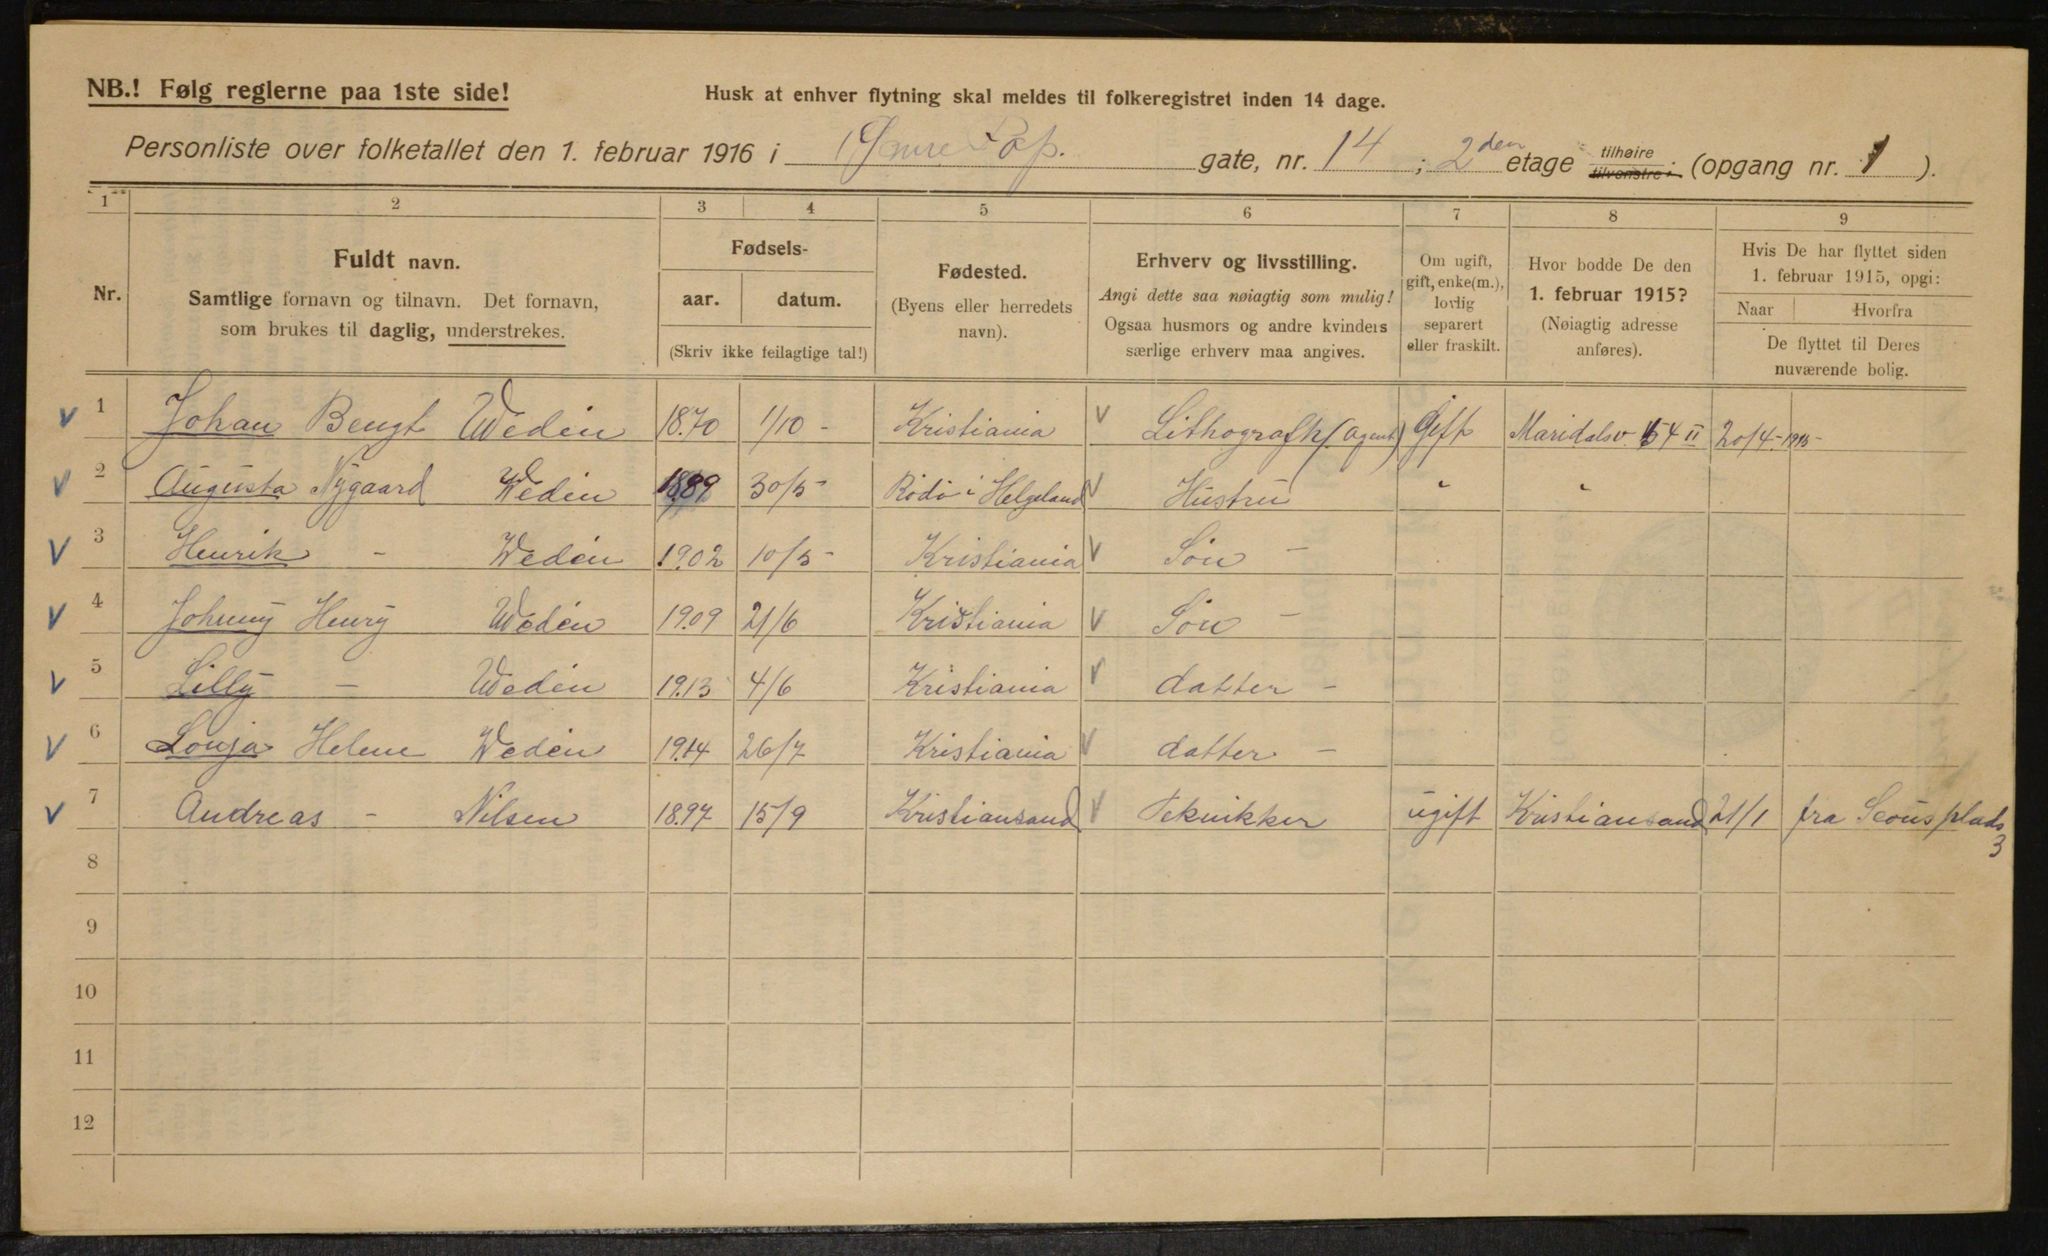 NB.! Følg reglerne paa 1ste side!
Husk at enhver flytning skal meldes til folkeregistret inden 14 dage.
Personliste over folketallet den 1. februar 1916 i gate, nr. 14; 2den etage tilhøire tilvenstre. (opgang nr. 1).
1 2 3 4 5 6 7 8 9
Nr.
Fuldt navn.
Samtlige fornavn og tilnavn. Det fornavn,
som brukes til daglig, understrekes.
Fødsels-
aar. datum.
(Skriv ikke feilagtige tal!)
Fødested.
(Byens eller herredets
navn).
Erhverv og livsstilling.
Angi dette saa nøiagtig som mulig!
Ogsaa husmors og andre kvinders
særlige erhverv maa angives.
Om ugift,
gift, enke(m.),
lovlig
separert
eller fraskilt.
Hvor bodde De den
1. februar 1915?
(Nøiagtig adresse
anføres).
Hvis De har flyttet siden
1. februar 1915, opgi:
Naar Hvorfra
De flyttet til Deres
nuværende bolig.
1 Johan Bengt Wedén 1870 1/10 - Kristiania Lithograf (agent) Gift Maridalsv. II 20/4-1915-
2 Augusta Nygaard Wedén 1889 30/5 - Rödö i Helgeland Hustru " "
3 Henrik - Wedén 1902 10/5 - Kristiania Sön -
4 Johnny Henry Wedén 1909 21/6 Kristiania Sön -
5 Lilly - Wedén 1913 4/6 Kristiania datter -
6 Sonja Helene Wedén 1914 26/7 Kristiania datter -
7 Andreas - Nilsen 1897 15/9 Kristiansand Teknikker ugift Kristiansand 21/1 fra plads 3
8
9
10
11
12